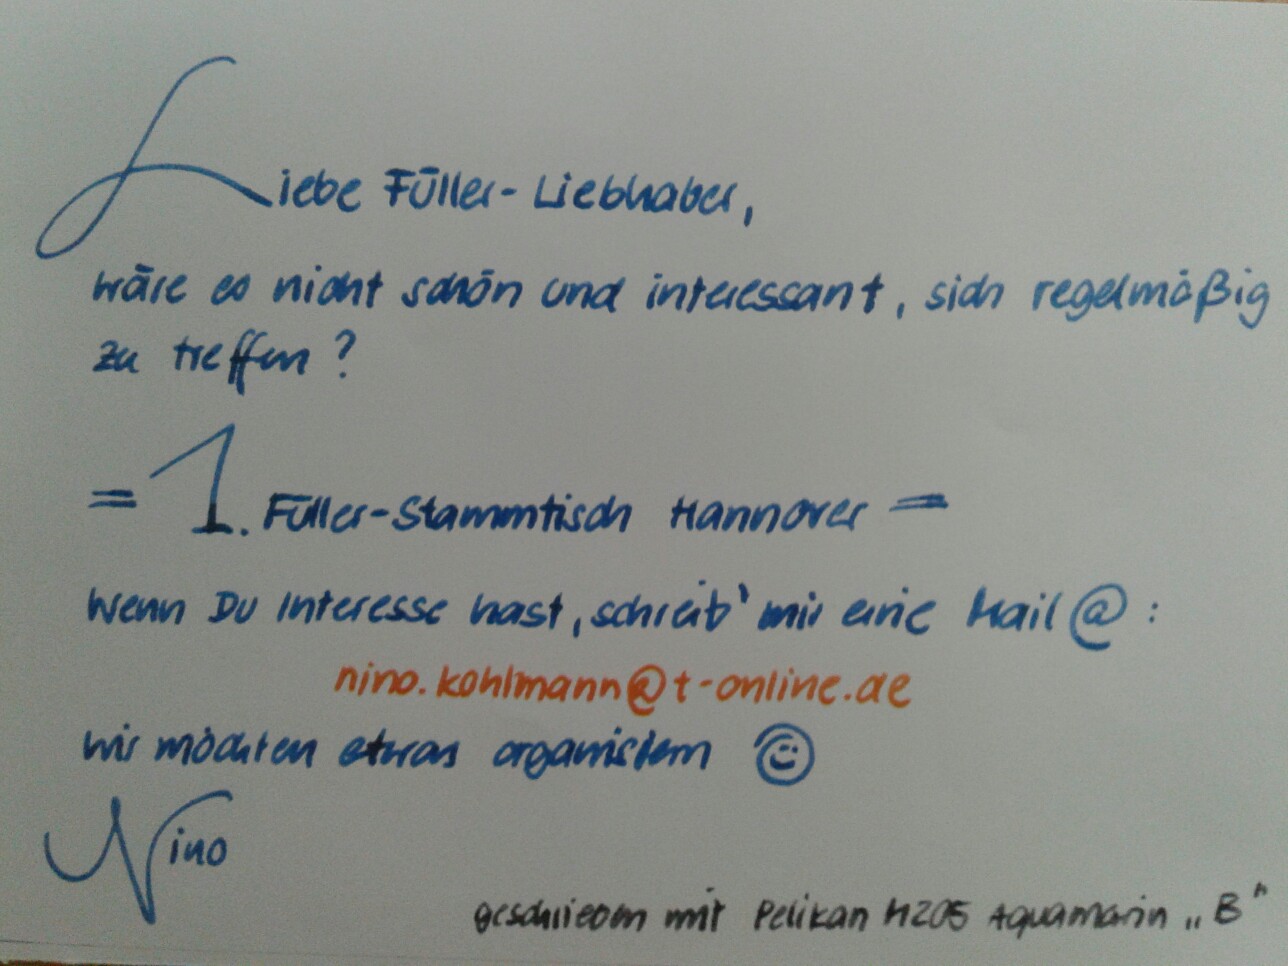 Liebe Füller-Liebhaber,
wäre es nicht schön und interessant, sich regelmäßig
zu treffen?
= 1. Füller-Stammtisch Hannover =
Wenn Du Interesse hast, schreib' mir eine Mail @:
nino.kohlmann@t-online.de
Wir möchten etwas organisieren ☺
Nino
geschrieben mit Pelikan M205 Aquamarin „B"